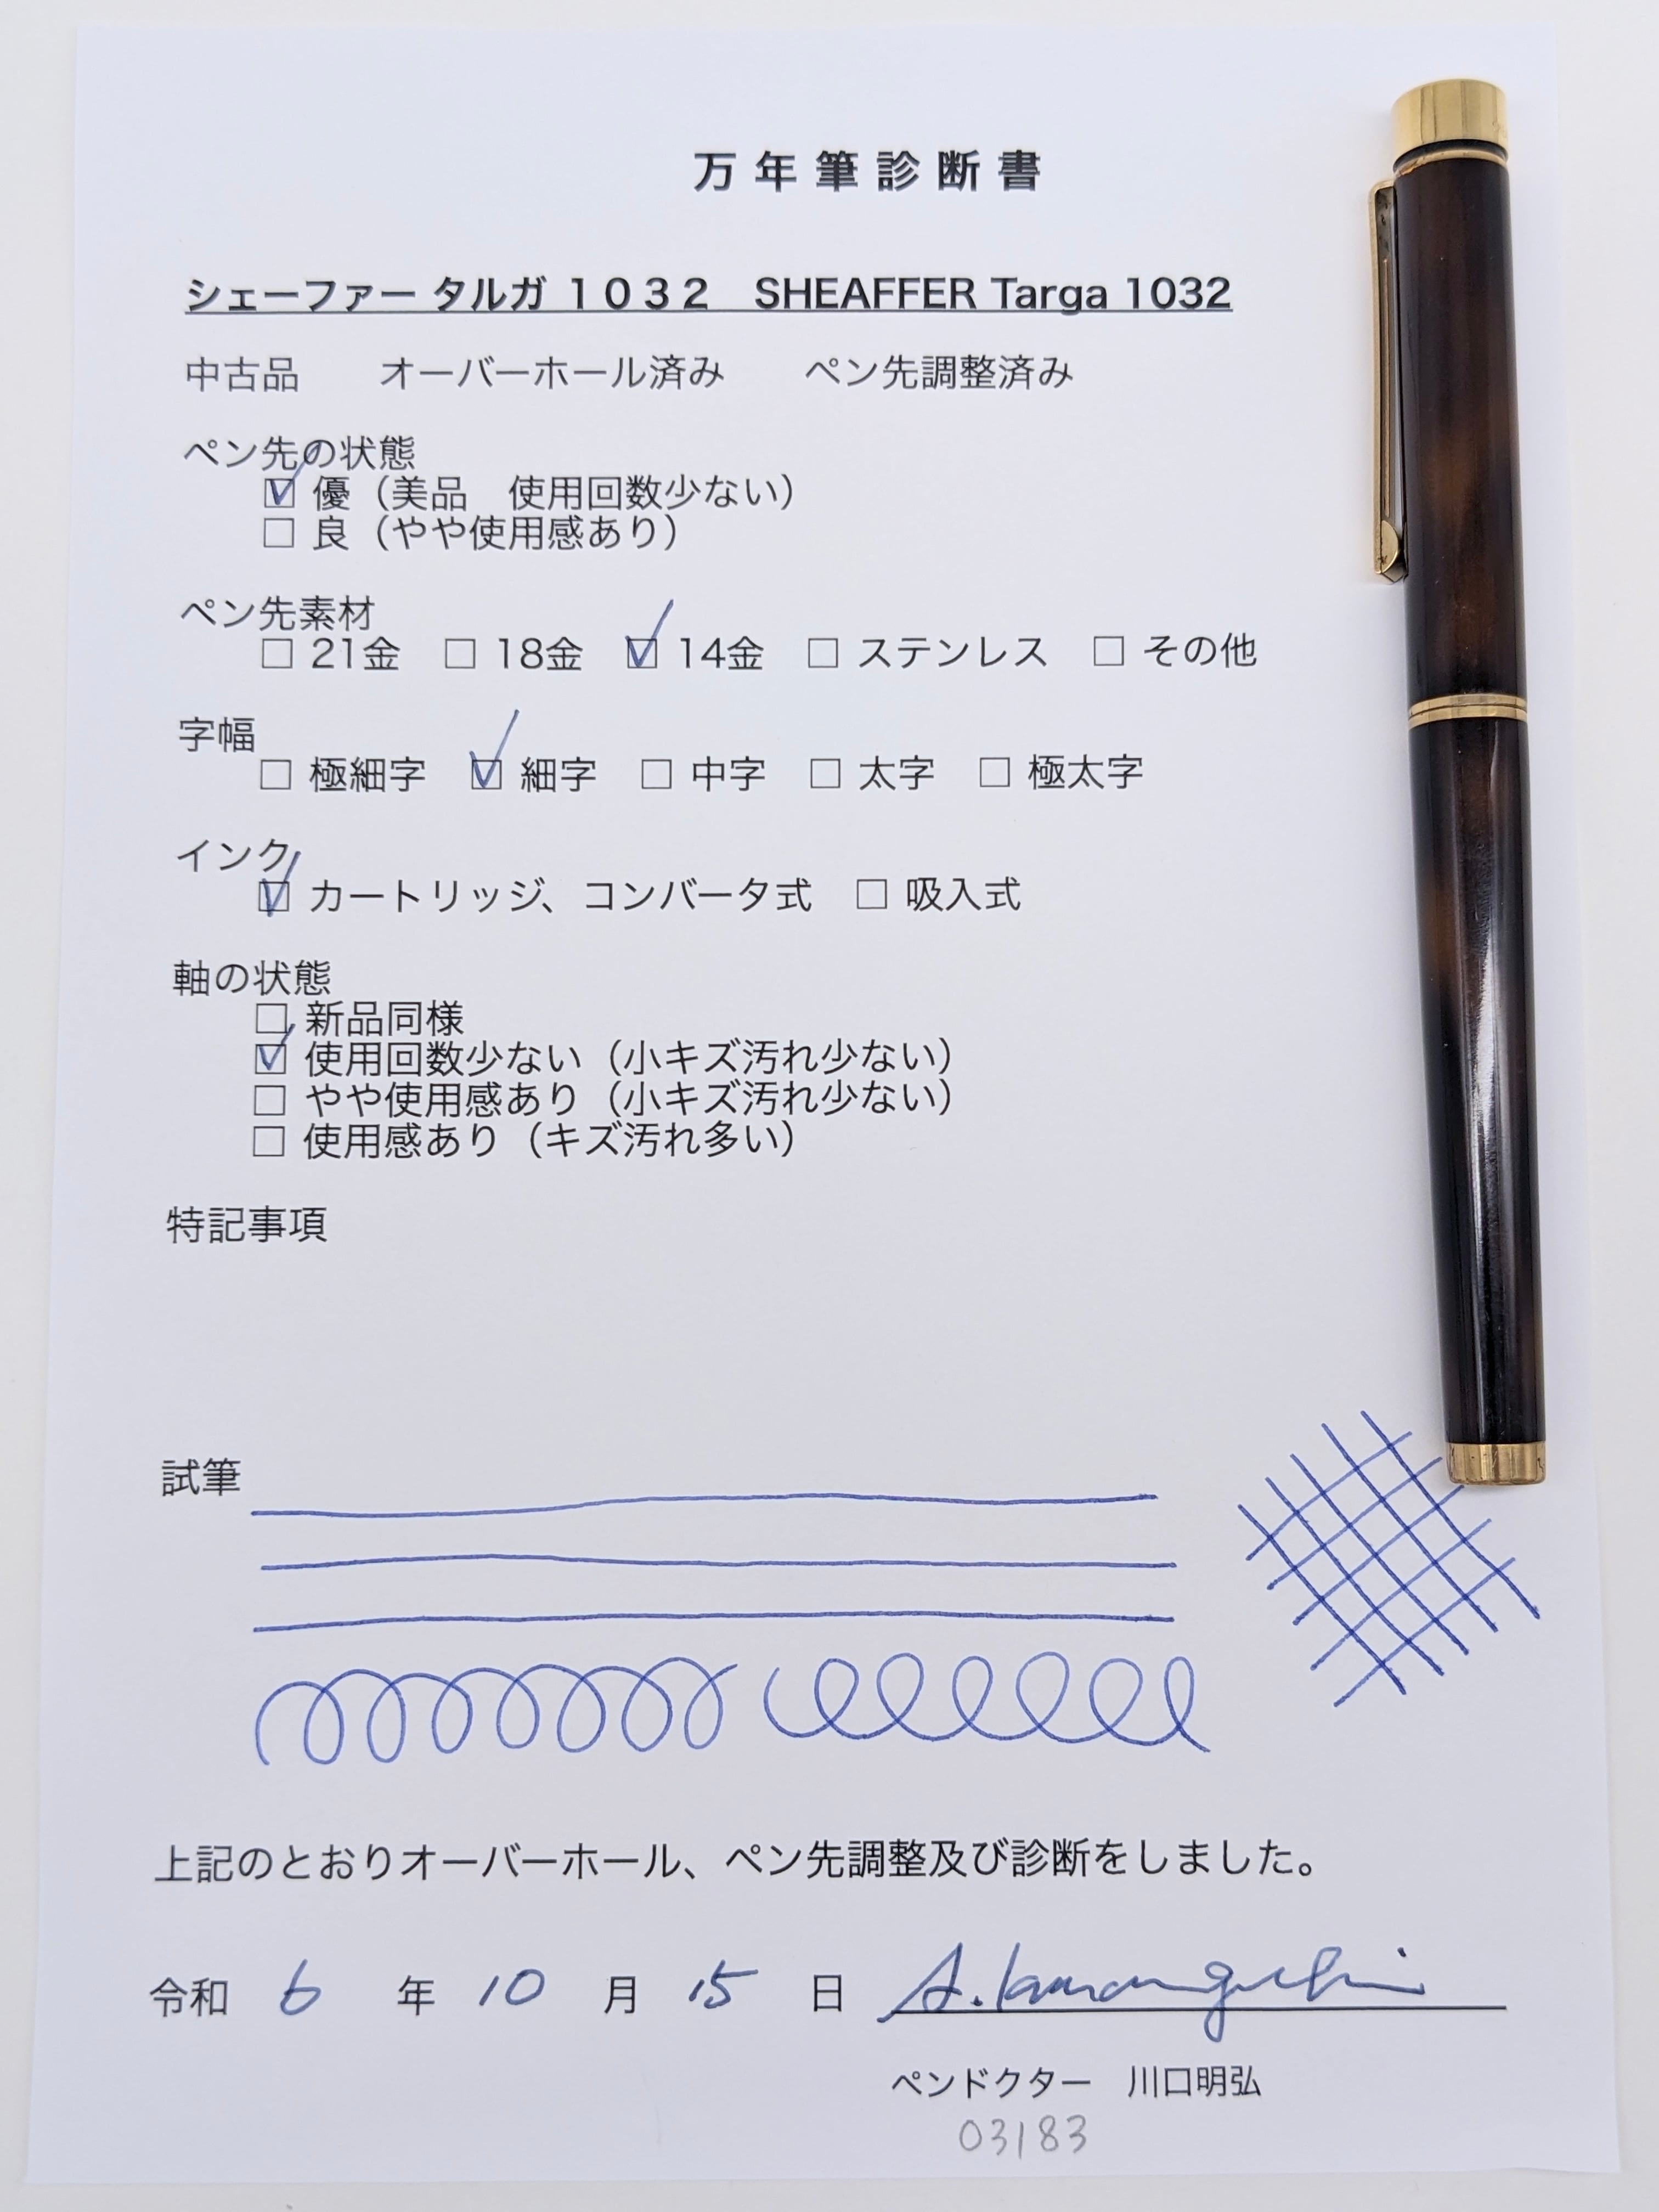 万年筆診断書
シェーファー タルガ １０３２　SHEAFFER Targa 1032
中古品　　オーバーホール済み　　ペン先調整済み
ペン先の状態
☑ 優（美品　使用回数少ない）
☐ 良（やや使用感あり）
ペン先素材
☐ 21金　☐ 18金　☑ 14金　☐ ステンレス　☐ その他
字幅
☐ 極細字　☑ 細字　☐ 中字　☐ 太字　☐ 極太字
インク
☑ カートリッジ、コンバータ式　☐ 吸入式
軸の状態
☐ 新品同様
☑ 使用回数少ない（小キズ汚れ少ない）
☐ やや使用感あり（小キズ汚れ少ない）
☐ 使用感あり（キズ汚れ多い）
特記事項
試筆
上記のとおりオーバーホール、ペン先調整及び診断をしました。
令和 6 年 10 月 15 日 A. Kawaguchi
ペンドクター　川口明弘
03183